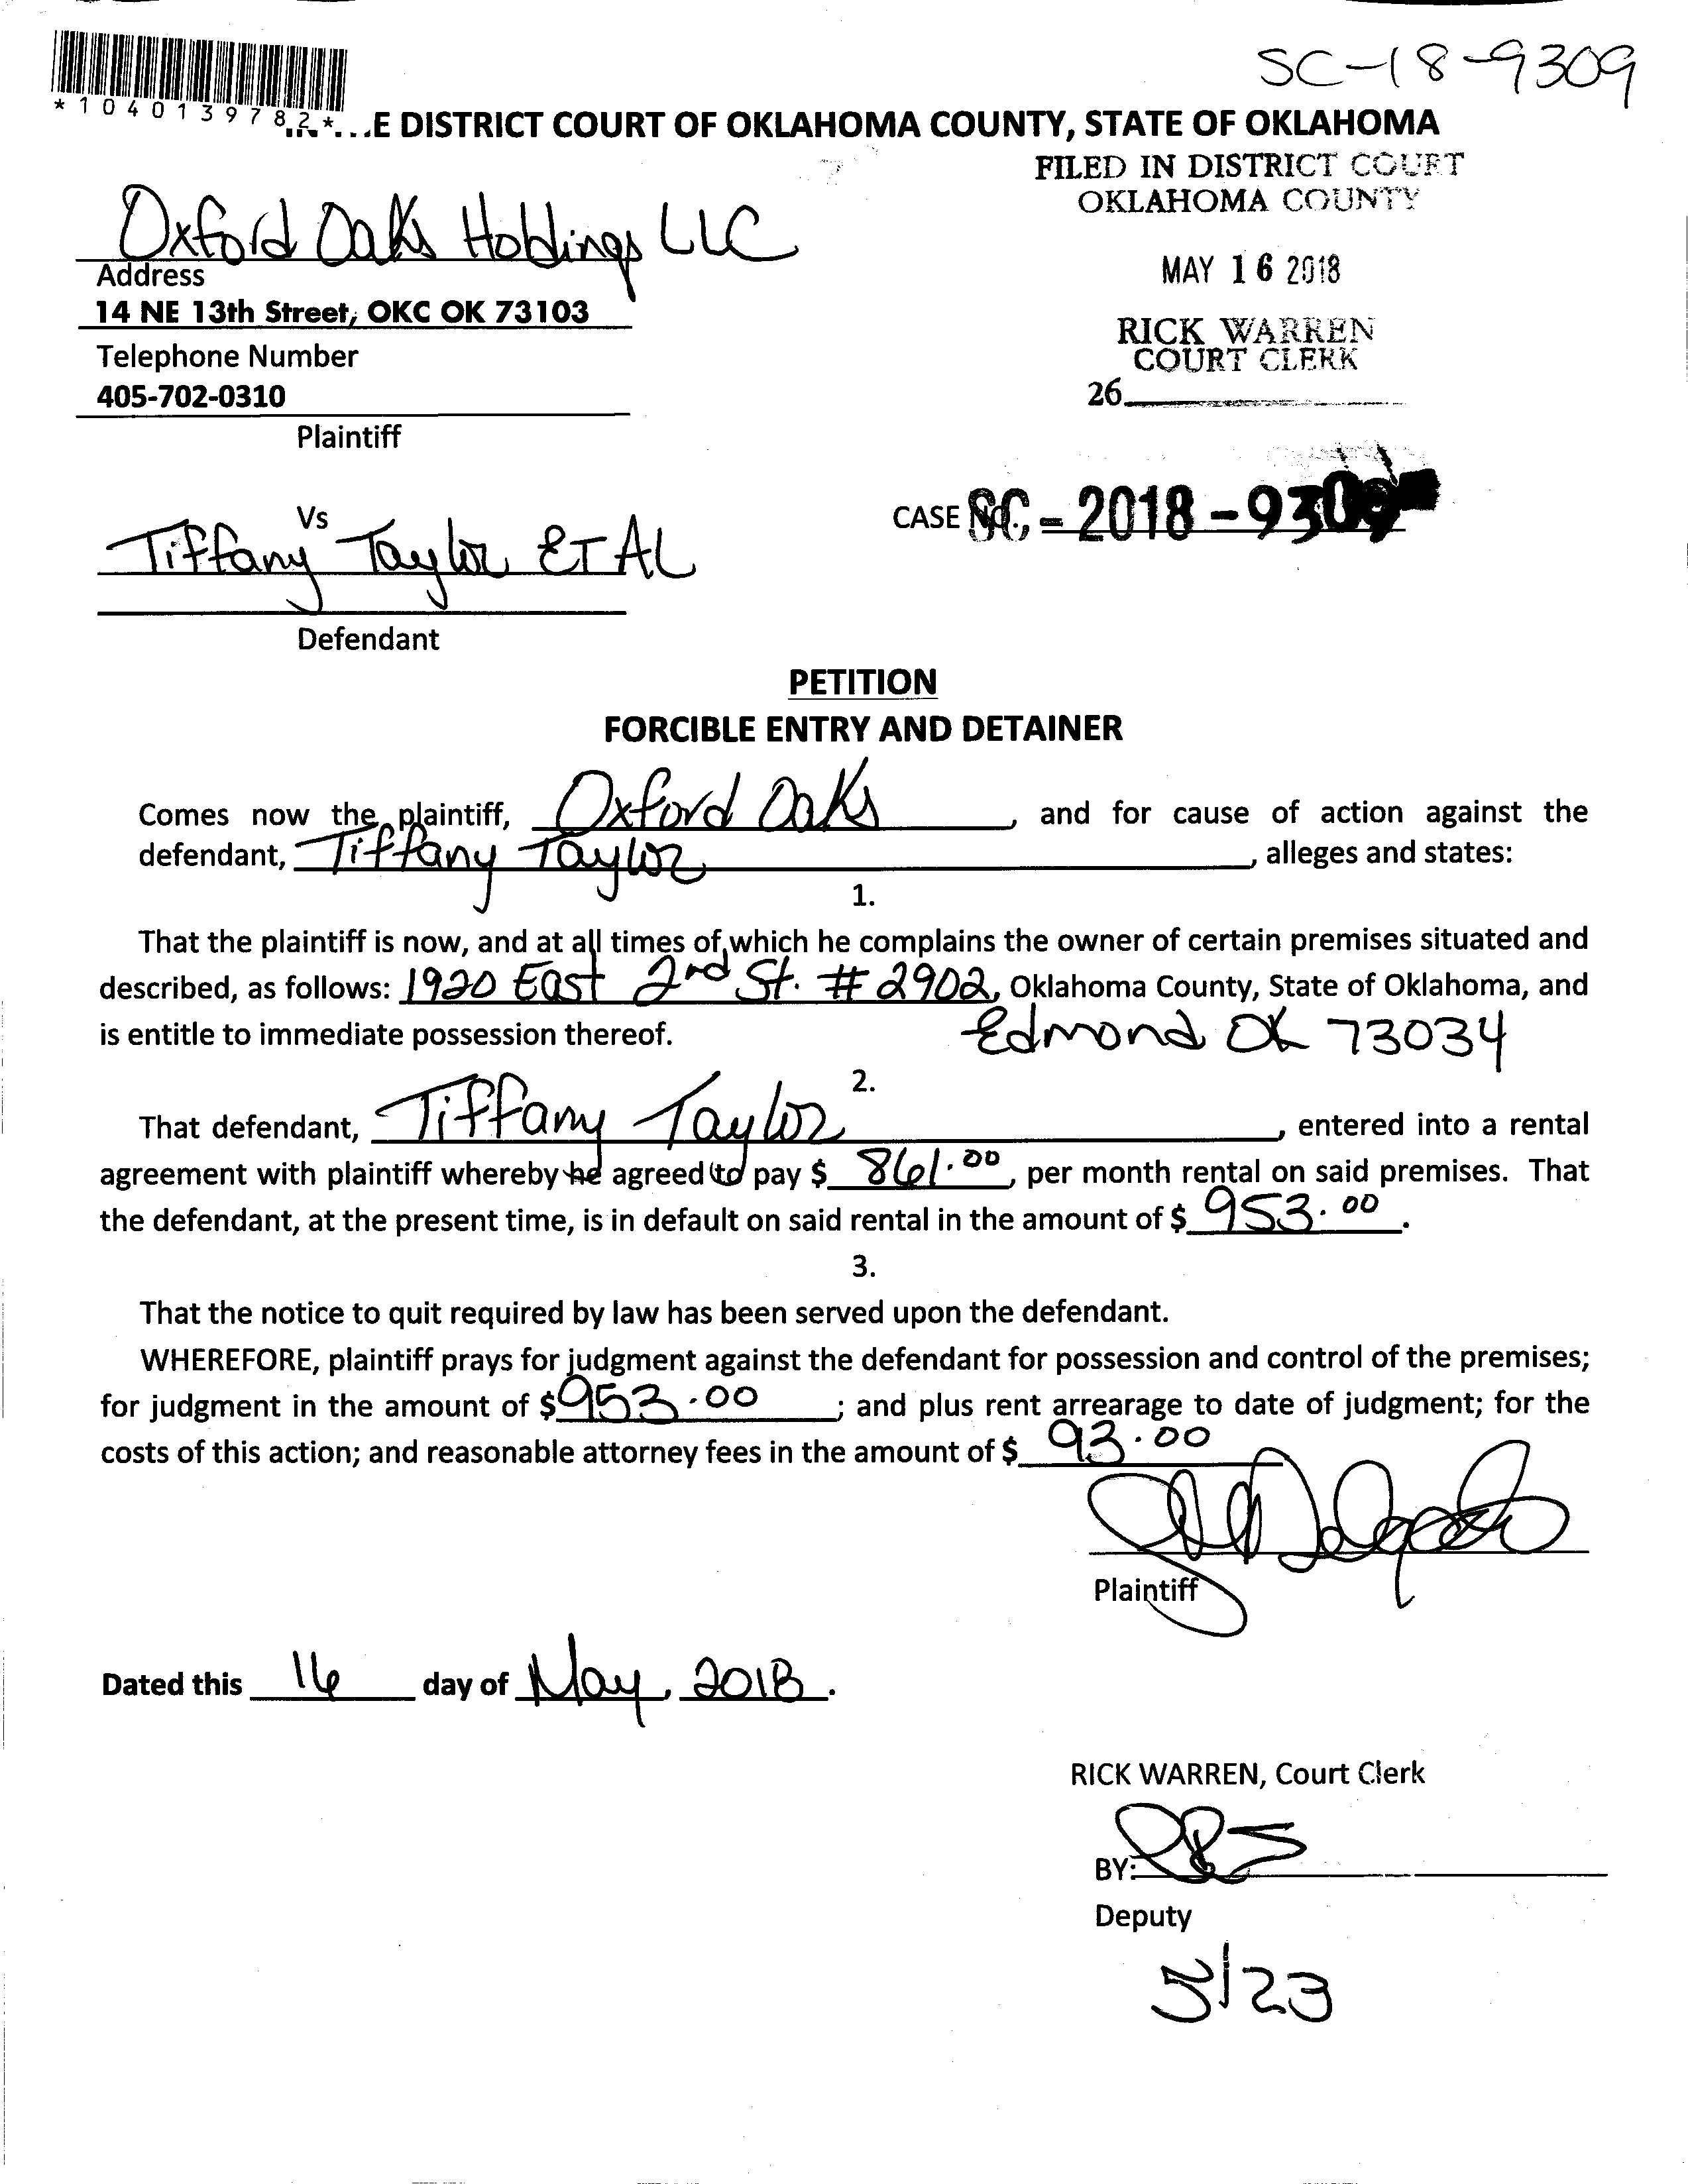 SC-18-9309
*1040139782*
E DISTRICT COURT OF OKLAHOMA COUNTY, STATE OF OKLAHOMA
FILED IN DISTRICT COURT
OKLAHOMA COUNTY
MAY 16 2018
RICK WARREN
COURT CLERK
26
Oxford Oaks Holdings LLC
Address
14 NE 13th Street, OKC OK 73103
Telephone Number
405-702-0310
Plaintiff
Vs
CASE No., SC-2018-9309
Tiffany Taylor ET AL
Defendant
PETITION
FORCIBLE ENTRY AND DETAINER
Comes now the plaintiff, Oxford Oaks, and for cause of action against the
defendant, Tiffany Taylor, alleges and states:
1.
That the plaintiff is now, and at all times of which he complains the owner of certain premises situated and
described, as follows: 1920 East 2nd St. # 2902, Oklahoma County, State of Oklahoma, and
is entitle to immediate possession thereof. Edmond OK 73034
2.
That defendant, Tiffany Taylor, entered into a rental
agreement with plaintiff whereby he agreed to pay $ 861.00, per month rental on said premises. That
the defendant, at the present time, is in default on said rental in the amount of $ 953.00.
3.
That the notice to quit required by law has been served upon the defendant.
WHEREFORE, plaintiff prays for judgment against the defendant for possession and control of the premises;
for judgment in the amount of $953.00; and plus rent arrearage to date of judgment; for the
costs of this action; and reasonable attorney fees in the amount of $ 93.00
Plaintiff
Dated this 16 day of May, 2018.
RICK WARREN, Court Clerk
BY:
Deputy
5/23